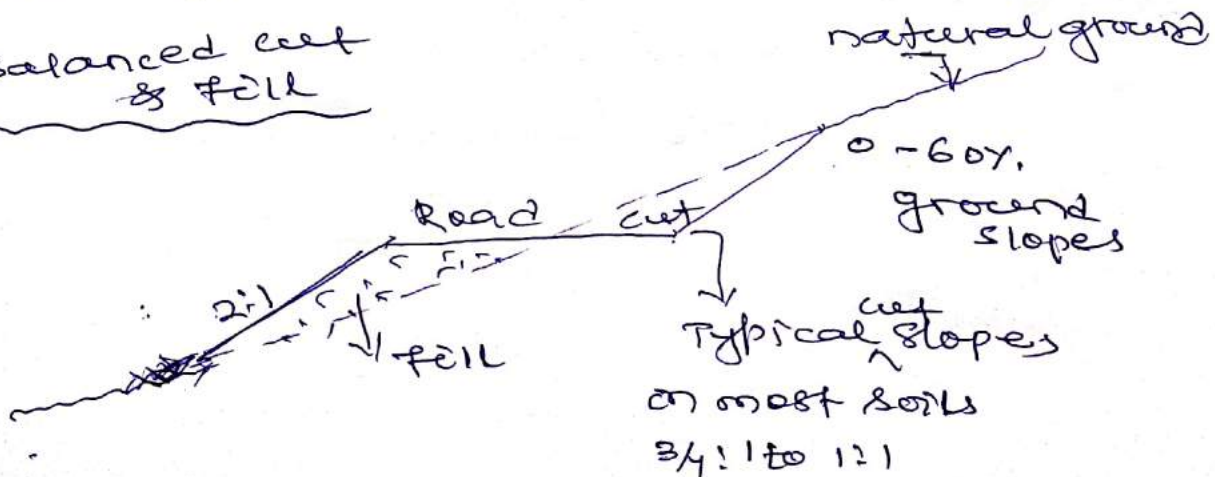 Balanced cut
& fill
natural ground
0 - 60%.
ground
slopes
Road
cut
2:1
fill
Typical cut slopes
in most soils
3/4:1 to 1:1